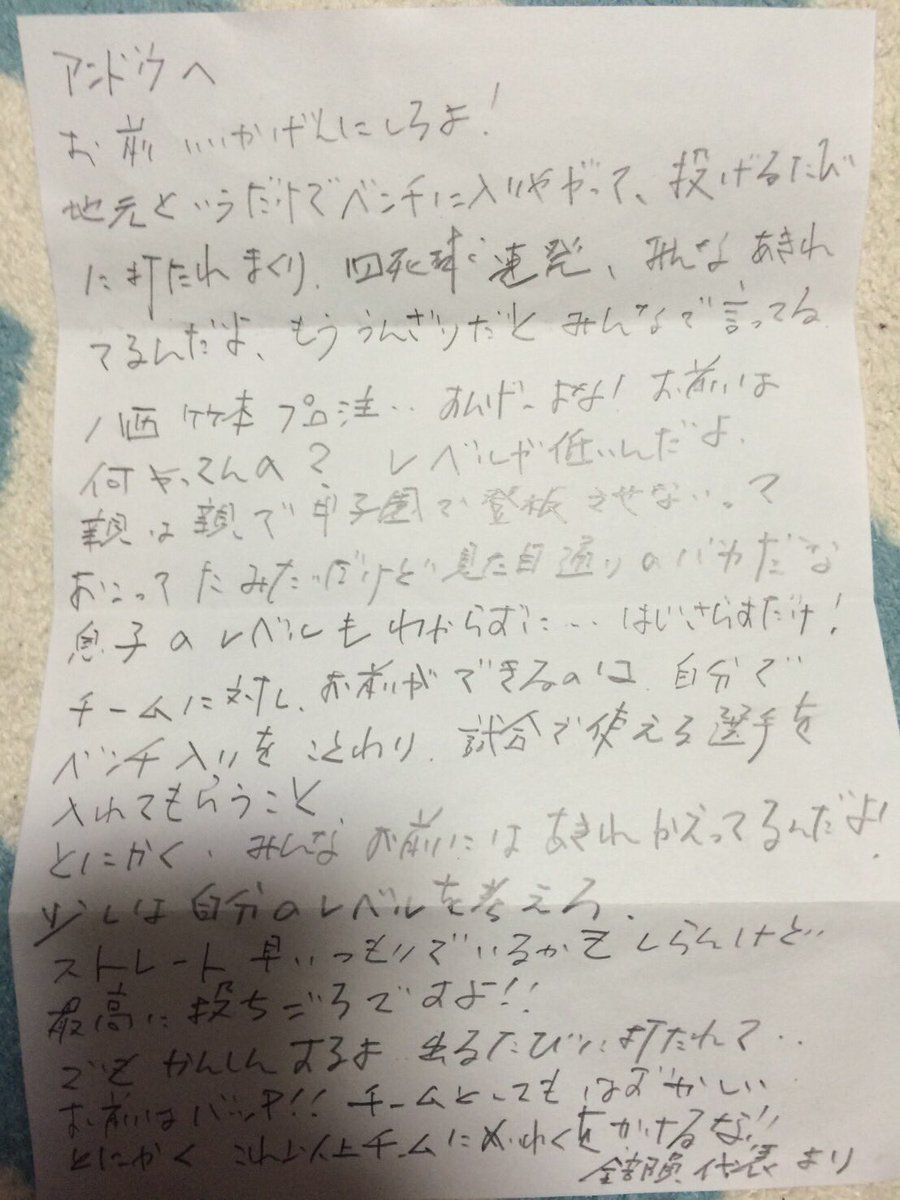 アンドウへ
お前いいかげんにしろよ!
地元というだけでベンチに入りやがって、投げるたび
に打たれまくり、四死球連発、みんなあきれ
てるんだよ、もううんざりだとみんなで言ってる
八西 竹本 プロ注‥ お前は
何やってんの? レベルが低いんだよ、
親は親で甲子園で登板させないって
おこってたみたいだけど見た目通りのバカだな
息子のレベルもわからずに… はじさらすだけ!
チームに対し、お前ができるのは、自分で
ベンチ入りをことわり、試合で使える選手を
入れてもらうこと
とにかく、みんなお前にはあきれかえってるんだよ!
少しは自分のレベルを考えろ、
ストレート早いつもりでいるかもしらんけど
最高に投ちごろですよ!!
でもかんしんするよ 出るたびに打たれて‥
お前はバッP!! チームとしてもはずかしい
とにかく これ以上チームにめいわくをかけるな!!
全部員代表より